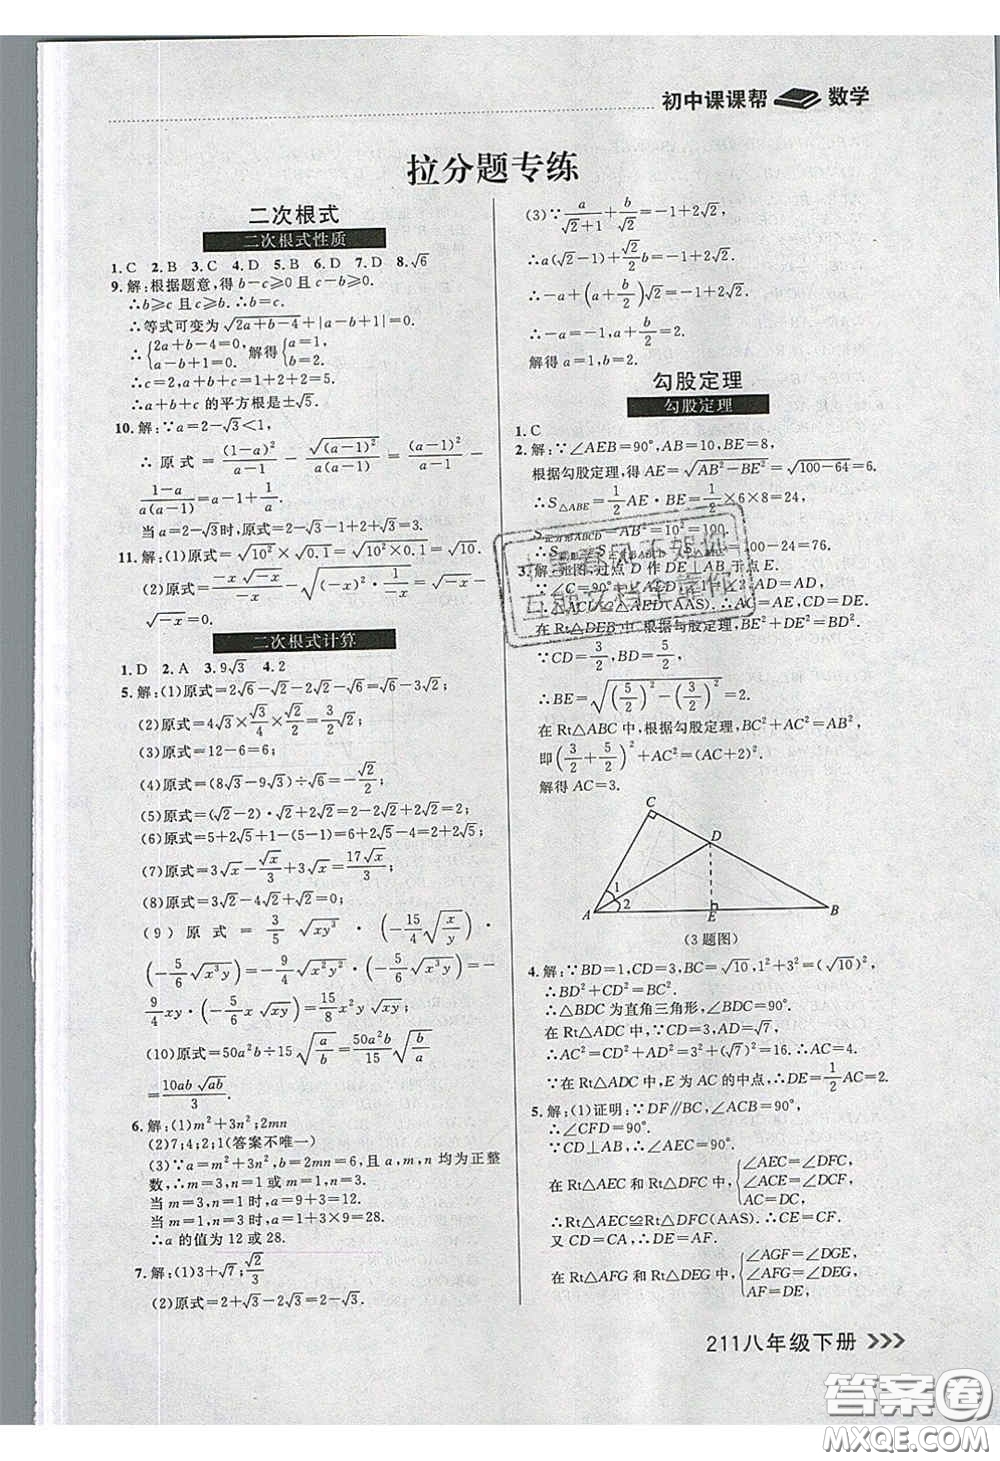 初中课课帮 数学
拉分题专练
二次根式
二次根式性质
1.C 2.B 3.C 4.D 5.B 6.D 7.D 8.√6
9.解:根据题意,得b-c≥0且c-b≥0.
∴b≥c且c≥b.∴b=c.
∴等式可变为√(2a+b-4)+|a-b+1|=0.
∴{2a+b-4=0, a-b+1=0. 解得{a=1, b=2.
∴c=2,a+b+c=1+2+2=5.
∴a+b+c的平方根是±√5.
10.解:∵a=2-√3<1,
∴原式=(1-a)²/(a-1)-√(a-1)²/(a(a-1))=(a-1)²/(a-1)-
(1-a)/(a(a-1))=a-1+1/a.
当a=2-√3时,原式=2-√3-1+2+√3=3.
11.解:(1)原式=√(10²×0.1)=√(10²×0.1)=√10.
(2)原式=(-x√-x)/(-x)-√((-x)²·(-1/x))=√-x-
√-x=0.
二次根式计算
1.D 2.A 3.9√3 4.2
5.解:(1)原式=2√6-√2-2√2-√6=√6-3√2;
(2)原式=4√3×√3/4×√2/2=3/2√2;
(3)原式=12-6=6;
(4)原式=(8√3-9√3)÷√6=-√2/2;
(5)原式=(√2-2)·√2+2√2=2-2√2+2√2=2;
(6)原式=5+2√5+1-(5-1)=6+2√5-4=2+2√5;
(7)原式=3√x-√x/3+3√x=17√x/3;
(8)原式=3√2-4√2+√2=0;
(9)原式=3/5√(xy³)·(-15/4√(x/y))
·(-5/6√(x³y))=-9/4√(x²y²)·(-5/6√(x³y))=-
9/4xy·(-5/6x√(xy))=15/8x²y√(xy);
(10)原式=50a²b÷15√(a/b)=50a²b/15√(b/a)
=10ab√(ab)/3.
6.解:(1)m²+3n²;2mn
(2)7;4;2;1(答案不唯一)
(3)∵a=m²+3n²,b=2mn=6,且a,m,n均为正整
数,∴m=3,n=1或m=1,n=3.
当m=3,n=1时,a=9+3=12.
当m=1,n=3时,a=1+3×9=28.
∴a的值为12或28.
7.解:(1)3+√7;√2/3
(2)原式=2+√3-2√3=2-√3.
(3)∵a/(√2+1)+b/√2=-1+2√2,
∴a(√2-1)+√2/2b=-1+2√2.
∴-a+(a+b/2)√2=-1+2√2.
∴-a=-1,a+b/2=2.
解得a=1,b=2.
勾股定理
勾股定理
1.C
2.解:∵∠AEB=90°,AB=10,BE=8,
根据勾股定理,得AE=√(AB²-BE²)=√(100-64)=6.
∴S△ABE=1/2AE·BE=1/2×6×8=24,
S正方形ABCD=AB²=10²=100.
=100-24=76.
3.解:如图,过点D作DE⊥AB于点E.
∵∠C=90°,
∴△ACD≌△AED(AAS).
在Rt△DEB中,根据勾股定理,BE²+DE²=BD².
∵CD=3/2,BD=5/2,
∴BE=√((5/2)²-(3/2)²)=2.
在Rt△ABC中,根据勾股定理,BC²+AC²=AB²,
即(3/2+5/2)²+AC²=(AC+2)².
解得AC=3.
C
D
1
2
A
E
B
(3题图)
4.解:∵BD=1,CD=3,BC=√10,1²+3²=(√10)²,
∴BD²+CD²=BC².
∴△BDC为直角三角形,∠BDC=90°.
在Rt△ADC中,∵CD=3,AD=√7,
∴AC²=CD²+AD²=3²+(√7)²=16.∴AC=4.
∵在Rt△ADC中,E为AC的中点,∴DE=1/2AC=2.
5.解:(1)证明:∵DF∥BC,∠ACB=90°,
∴∠CFD=90°.
∵CD⊥AB,∴∠AEC=90°.
在Rt△AEC和Rt△DFC中,{∠AEC=∠DFC, ∠ACE=∠DCF, AC=DC,
∴Rt△AEC≌Rt△DFC(AAS).∴CE=CF.
又CD=CA,∴DE=AF.
在Rt△AFG和Rt△DEG中,{∠AGF=∠DGE, ∠AFG=∠DEG, AF=DE,
211八年级下册 >>>
答案圈
MXQE.COM